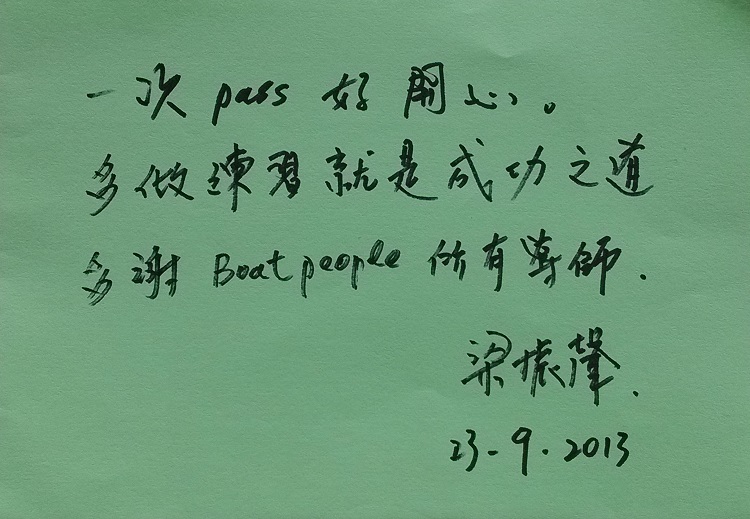 一次 pass 好開心。
多做練習就是成功之道
多謝 Boatpeople 所有導師.
梁振聲.
23-9.2013